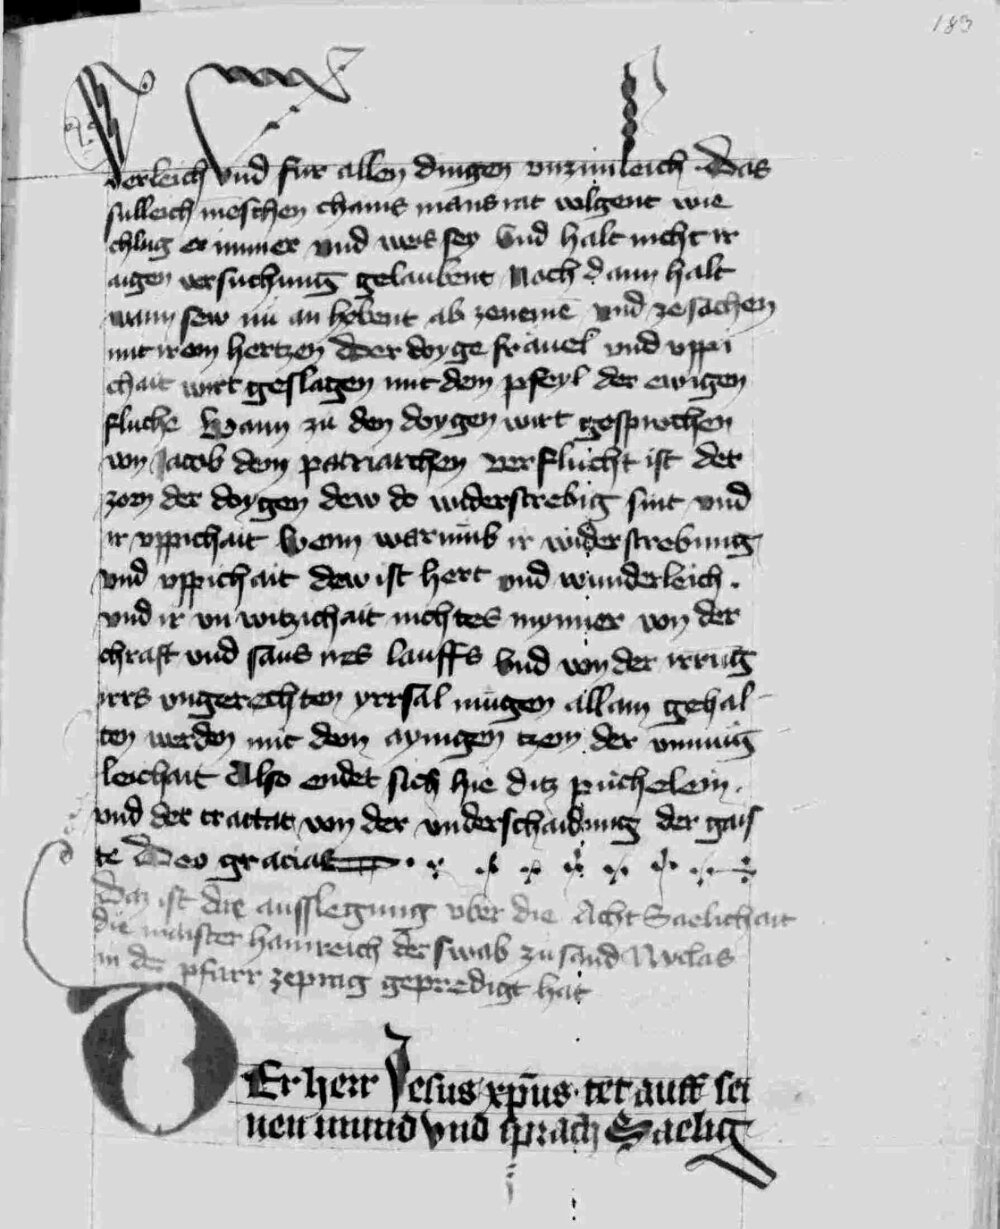 183
verleich vnd fur allen dingen vnzimleich Das
sulleich menschen chains mans rat volgent wie
chlug er immer vnd weis sey Vnd halt nicht ir
aigen versuchung gelaubent Noch dann halt
wann sew nu an hebent ab zenemē vnd ze sachen
mit irem hertzen Der doyge frauel vnd vppi
chait wirt geslagen mit dem pfeyl der ewigen
fluche Wann zu den doygen wirt gesprochen
von Jacob dem patriarchen Verflucht ist der
zorn der doygen dew do widerstrebig sint vnd
ir vppichait Wenn warumb ir widerstrebung
vnd vppichait dew ist hert vnd wunderleich .
vnd ir vnwitzichait nichtes mynner von der
chraft vnd saus irs lauffs Vnd von der irrūg
irrs vngerechten yrrsal mugen allain gehal
ten werden mit dem aynigen tzem der
leichait Also endet sich hie ditz puchelein .
vnd der tractat von der vnderschaidung der gais
te Deo gracias
Daz ist die ausslegung vber die Acht Saelichait
die maister hainreich der swab zu sand Nyclas
in der pfarr ze prag gepredigt hat
DEr herr Jesus xp̄us tet auff sei
nen mund vnd sprach Saelig